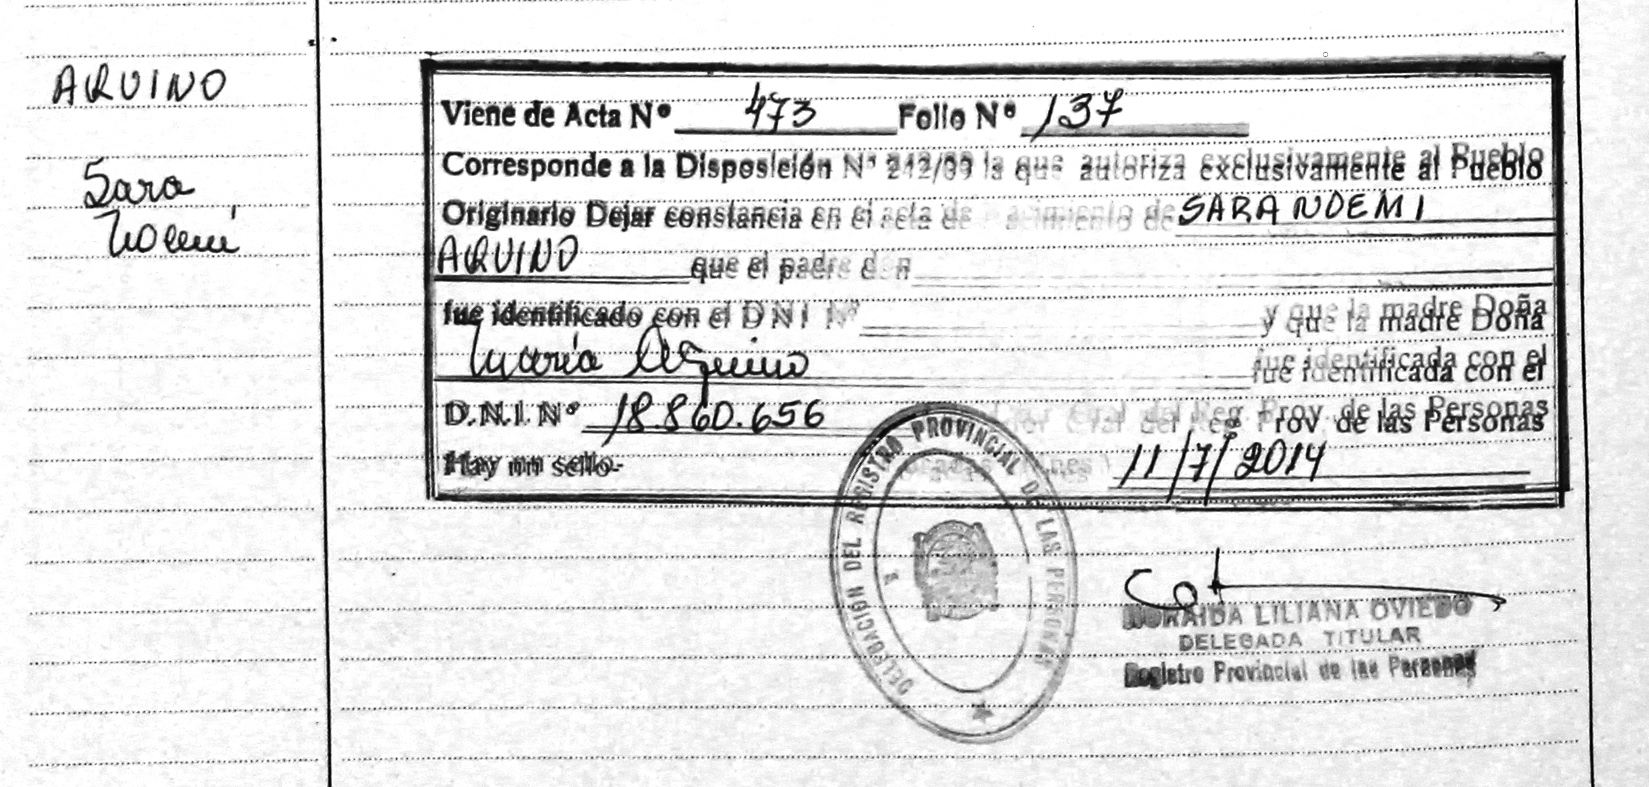 AQUINO
Sara
Noemí
Viene de Acta Nº 473 Folio Nº 137
Corresponde a la Disposición Nº 242/99 la que autoriza exclusivamente al Pueblo
Originario Dejar constancia en el acta de nacimiento de SARA NOEMI
AQUINO que el padre don
fue identificado con el D N I Nº y que la madre Doña
María Aquino fue identificada con el
D.N.I. Nº 18.860.656 Gral del Reg. Prov. de las Personas
Hay un sello- 11/7/2014
DELEGACION DEL REGISTRO PROVINCIAL DE LAS PERSONAS
NORAIDA LILIANA OVIEDO
DELEGADA TITULAR
Registro Provincial de las Personas